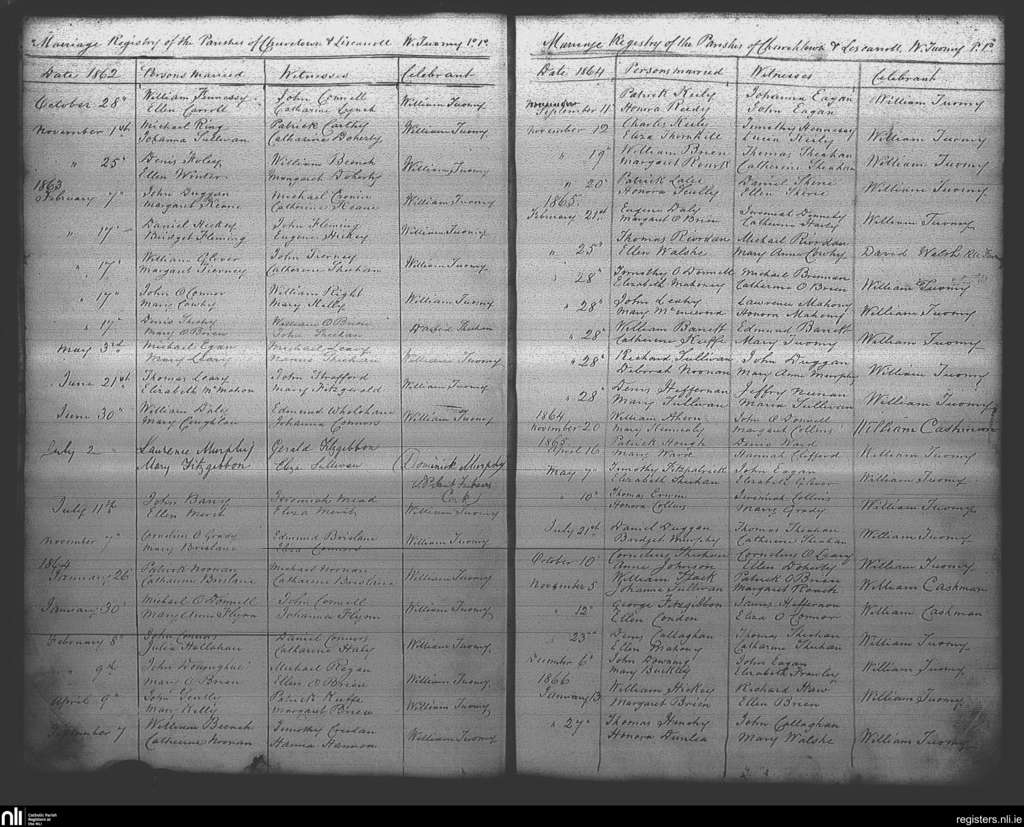 Marriage Registry of the Parishes of Churchtown & Liscarroll W. Twomy P.P.
Date 1862 Persons married Witnesses Celebrant
October 28th William Hennessy John Connell William Twomy
Ellen Carroll Catharine Lynch
November 1st Michael King Patrick Carthy William Twomy
Johanna Sullivan Catharine Doherty
" 25th Denis Foley William Beench William Twomy
Ellen Winter Margaret Doherty
1863
February 7th John Duggan Michael Cronin William Twomy
Margaret Keane Catherine Keane
" 17th Daniel Hickey John Fleming William Twomy
Bridget Fleming Eugene Hickey
" 17th William Glover John Tierney William Twomy
Margaret Tierney Catharine Theehan
" 17th John O Connor William Right William Twomy
Mary Cowhy Mary Kelly
" 17th Denis William O Brien David
Mary O Brien John Theehan
May 3rd Michael Egan Michael Leary William Twomy
Mary Leary Nanno Theehan
June 21st Thomas Leary John Strofford William Twomy
Elizabeth McMahon Mary Fitzgerald
June 30th William Daly Edmund Whelehane William Twomy
Mary Coughlan Johanna Connors
July 2 Laurence Murphy Gerald Fitzgibbon Dominick Murphy
Mary Fitzgibbon Eliza Sullivan
Cork
July 11th John Barry Jeremiah Mead William Twomy
Ellen Eliza
November 7th Cornelius O Grady Edmund Brislane William Twomy
Mary Brislane Eliza Connors
1864
January 26th Patrick Noonan Michael Noonan William Twomy
Catharine Brislane Catharine Brislane
January 30th Michael O Donnell John Connell William Twomy
Mary Anne Flynn Johanna Flynn
February 8th John Connors Daniel Connors William Twomy
Julia Hallahan Catharine Haly
" 9th John Michael Regan William Twomy
Mary O Brien Ellen O Brien
April 9th John Patrick Keeffe William Twomy
Mary Kelly Margaret Brien
September 7 William Beench Timothy Creedan William Twomy
Catherine Noonan Hanna Hannon
Marriage Registry of the Parishes of Churchtown & Liscarroll. W. Twomy P.P.
Date 1864 Persons married Witnesses Celebrant
September 11th Patrick Kiely Johanna Eagan William Twomy
Honora Reidy John Eagan
November 12 Charles Kiely Timothy Hennessy William Twomy
Eliza Thornhill Kiely
" 19th William Brien Thomas Theehan William Twomy
Margaret Catherine Theehan
" 20th Patrick Daniel Shine William Twomy
Honora Scully Ellen Shine
1865
February 21st Eugene Daly Jeremiah Dennehy William Twomy
Margaret O Brien Catherine
" 25th Thomas Riordan Michael Riordan David Walsh
Ellen Walshe Mary Anne Cowhy
" 28th Timothy O Donnell Michael Brennan William Twomy
Elizabeth Mahoney Catherine O Brien
" 28th John Leahy Lawrence Mahony William Twomy
Mary Honora Mahony
" 28th William Barrett Edmund Barrett William Twomy
Catherine Keeffe Mary Twomy
" 28th Richard Sullivan John Duggan William Twomy
Deborah Noonan Mary Anne Murphy
" 28 Denis Heffernan Jeffry Neenan William Twomy
Mary Sullivan Maria Sullivan
1864
November 20 William Ahern John O Donnell William Cashman
Mary Kennealy Margaret Collins
1865
April 16 Patrick Hough Denis Ward William Twomy
Mary Ward Hannah Clifford
May 7th Timothy Fitzpatrick John Eagan William Twomy
Elizabeth Theehan Elizabeth Glover
" 10th Thomas Cronin Jeremiah Collins William Twomy
Honora Collins Mary Grady
July 21st Daniel Duggan Thomas Theehan William Twomy
Bridget Murphy Catherine Theehan
October 10th Cornelius Theehane Cornelius O Leary William Twomy
Anne Johnson Ellen Doherty
November 5 William Flack Patrick O Brien William Cashman
Johanna Sullivan Margaret
" 12th George Fitzgibbon James Heffernan William Cashman
Ellen Condon Eliza O Connor
" 23rd Denis Callaghan Thomas Theehan William Twomy
Ellen Mahony Catharine Theehan
December 6th John Downing John Eagan William Twomy
Mary Buckley Elizabeth Frawley
1866
January 13 William Hickey Richard Haw William Twomy
Margaret Brien Ellen Brien
" 27th Thomas Hanohy John Callaghan William Twomy
Honora Dunlea Mary Walshe
nli Catholic Parish Registers at the NLI
registers.nli.ie